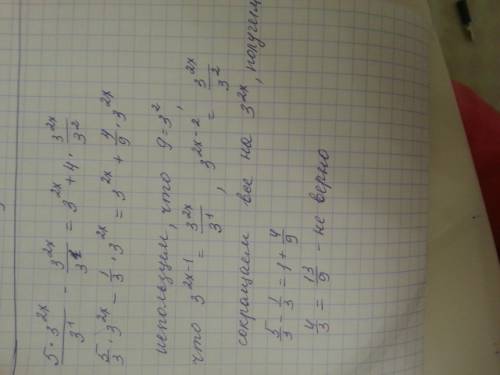 5·3^{2x}/3^1 - 3^{2x}/3^1 = 3^{2x} + 4·3^{2x}/3^2
5/3·3^{2x} - 1/3·3^{2x} = 3^{2x} + 4/9·3^{2x}
используем, что 9=3^2,
что 3^{2x-1} = 3^{2x}/3^1, 3^{2x-2} = 3^{2x}/3^2
сокращаем все на 3^{2x}, получем
5/3 - 1/3 = 1 + 4/9
4/3 = 13/9 - не верно